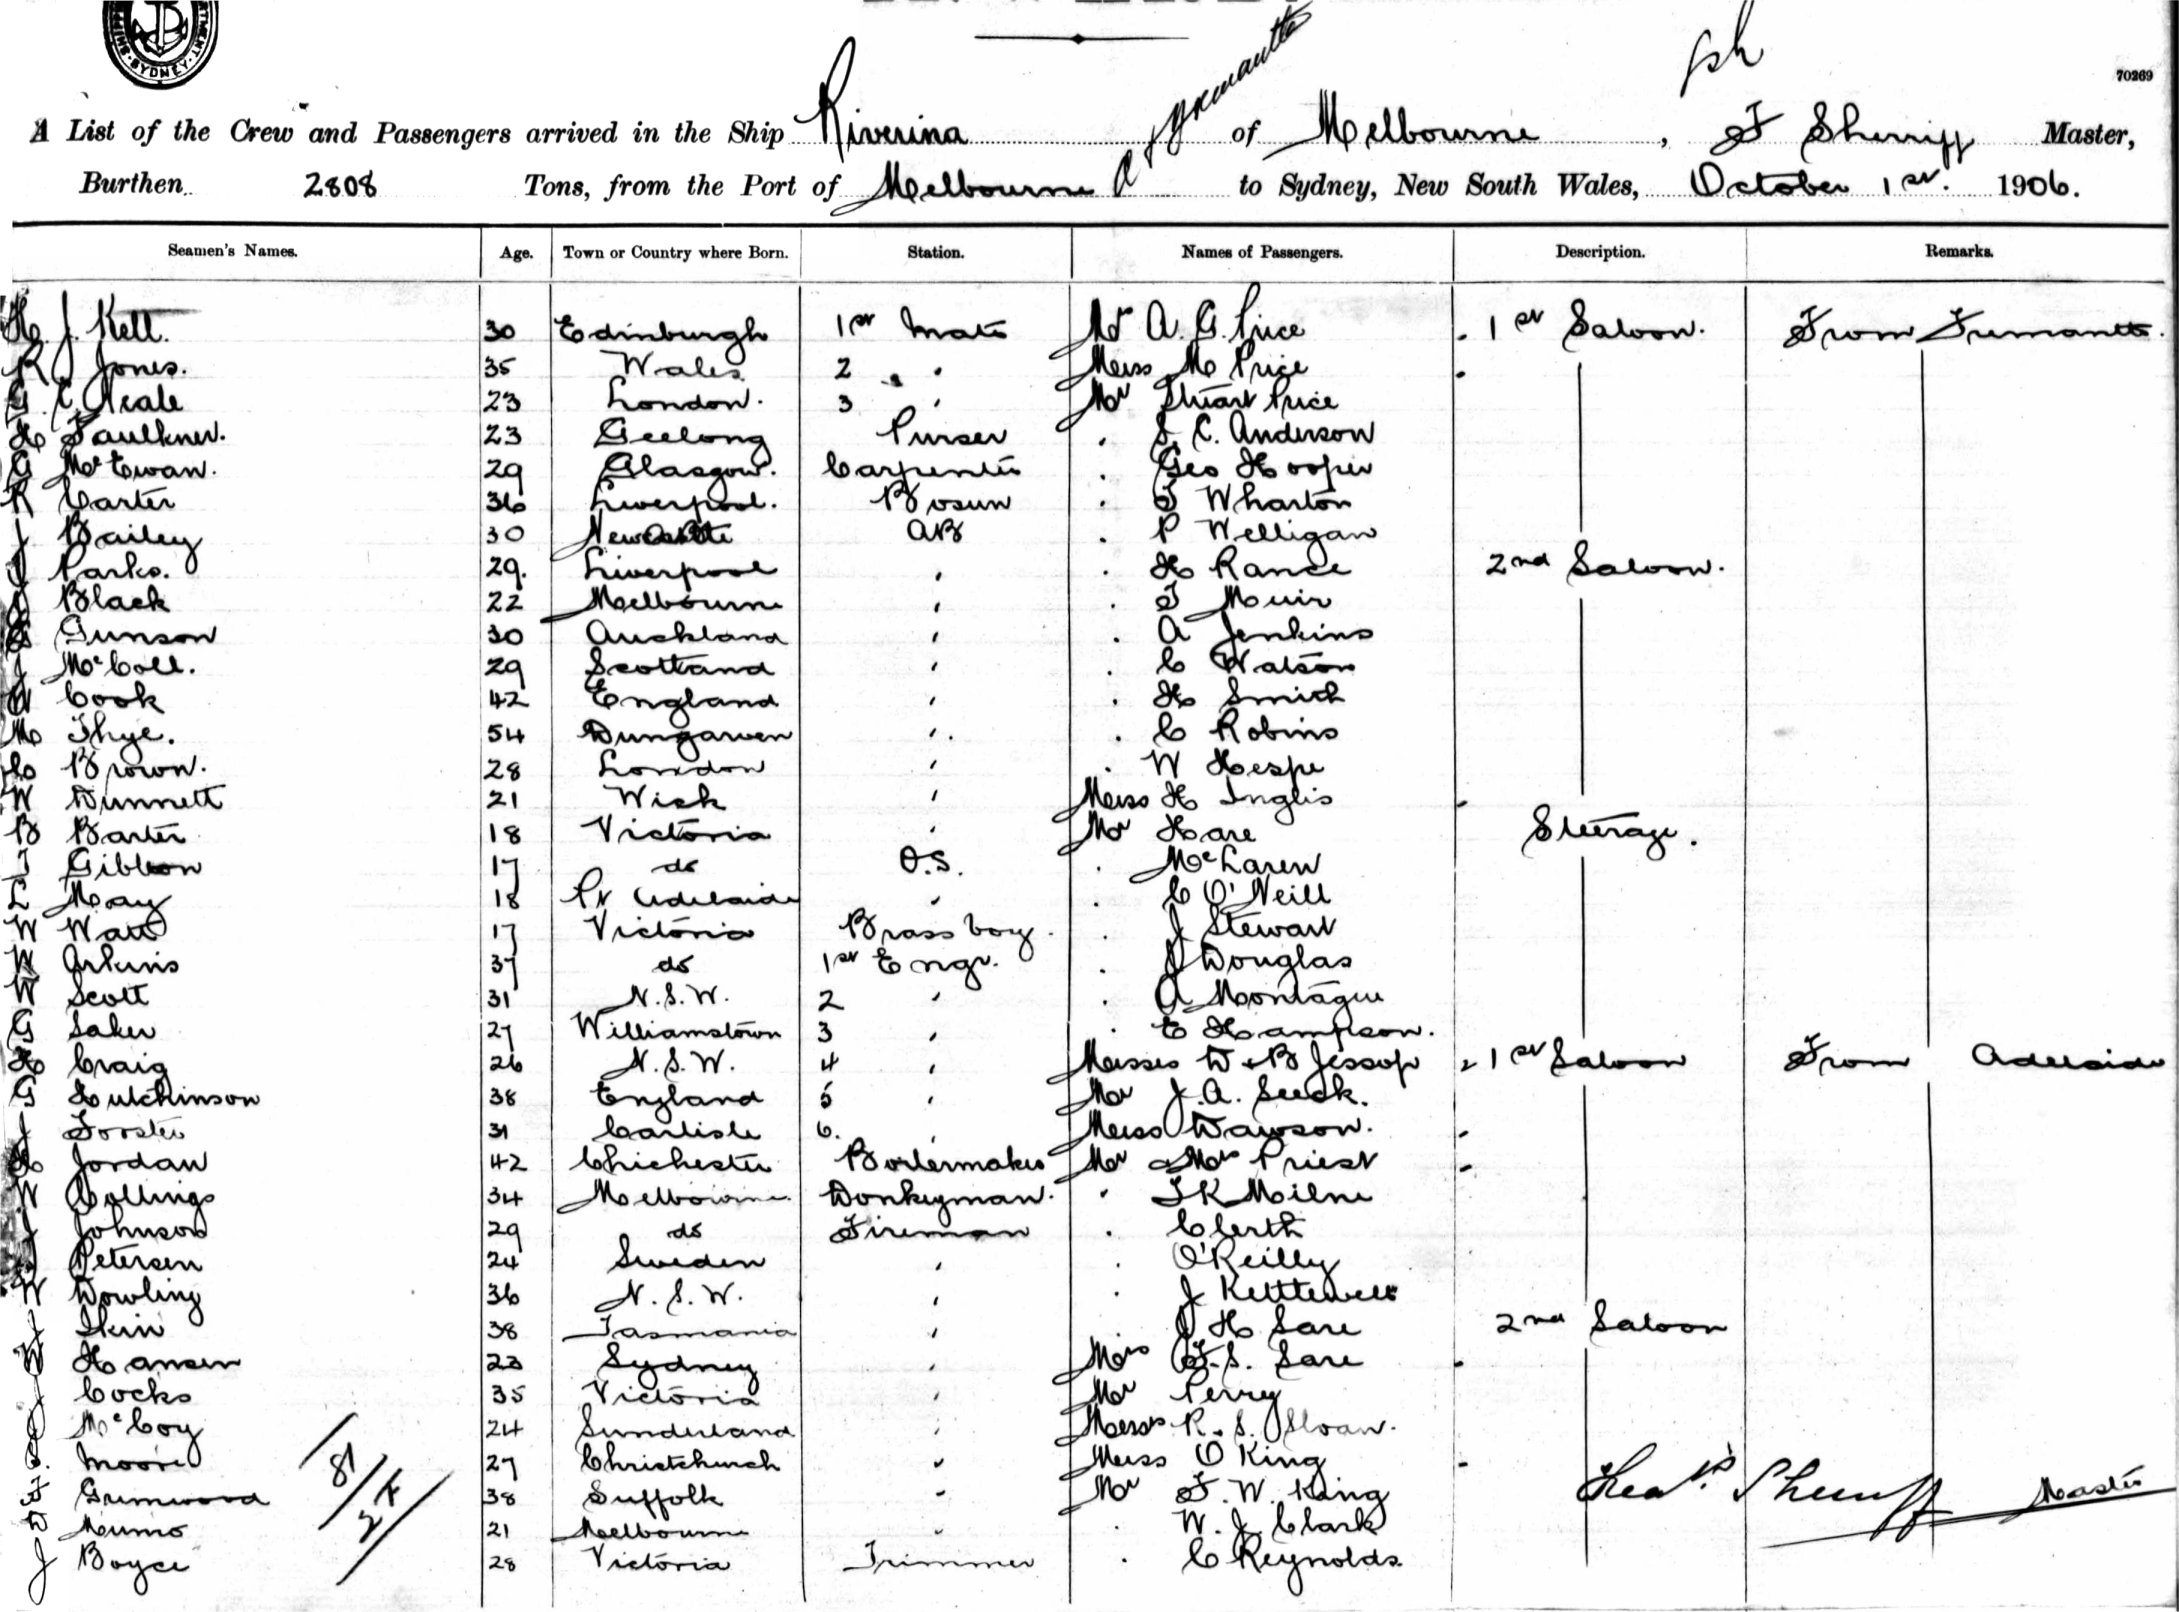 SYDNEY
70269
A List of the Crew and Passengers arrived in the Ship Riverina of Melbourne, F Sherriff Master,
Burthen 2808 Tons, from the Port of Melbourne & Fremantle to Sydney, New South Wales, October 1st. 1906.
Seamen's Names. Age. Town or Country where Born. Station. Names of Passengers. Description. Remarks.
H. J. Kell. 30 Edinburgh 1st Mate Mr A. G. Price 1st Saloon. From Fremantle.
R Jones. 35 Wales 2 " Miss M Price
G. E. Neale 23 London. 3 " Mr Stuart Price
H Faulkner. 23 Geelong Purser " S. C. Anderson
G McEwan. 29 Glasgow. Carpenter " Geo Hooper
R Carter 36 Liverpool. Bosun " T Wharton
J Bailey 30 Newcastle AB " P Welligan
J Parks. 29. Liverpool " " H Rance 2nd Saloon.
J Black 22 Melbourne " " T Muir
G Gunson 30 Auckland " " A Jenkins
J McColl. 29 Scotland " " C Watson
W Cook 42 England " " H Smith
M Thye. 54 Dungarven " " C Robins
C Brown. 28 London " " W Hespe
W Dunnett 21 Wick " Miss H Inglis
B Barter 18 Victoria " Mr Hare Steerage.
T Gibbon 17 do O.S. " McLaren
L May 18 Pt Adelaide " " C O'Neill
W Watt 17 Victoria Brass boy. " J Stewart
W Arkins 37 do 1st Engr. " J Douglas
W Scott 31 N.S.W. 2 " " A Montague
G Saker 27 Williamstown 3 " " E Hampson.
H Craig 26 N.S.W. 4 " Misses D & B Jessop 1st Saloon From Adelaide
G Hutchinson 38 England 5 " Mr J. A. Seeck.
J Forster 31 Carlisle 6. " Miss Dawson.
H Jordan 42 Chichester Boilermaker Mr & Mrs Priest
W Collings 34 Melbourne Donkeyman. " T K Milne
J Johnson 29 do Fireman " Cberth
J Petersen 24 Sweden " " O'Reilly
W Dowling 36 N.S.W. " " J Kettlewell
J Skin 38 Tasmania " " J H Sare 2nd Saloon
W Hansen 23 Sydney " Mrs F. S. Sare
J Cocks 35 Victoria " Mr Perry
J McCoy 24 Sunderland " Messrs R. S. Sloan.
Moore 27 Christchurch " Miss O King
F Grimwood 38 Suffolk " Mr F. W. King
D Munro 21 Melbourne " " W. J. Clark
J Boyce 28 Victoria Trimmer " C Reynolds.
81/24
Sherriff Master